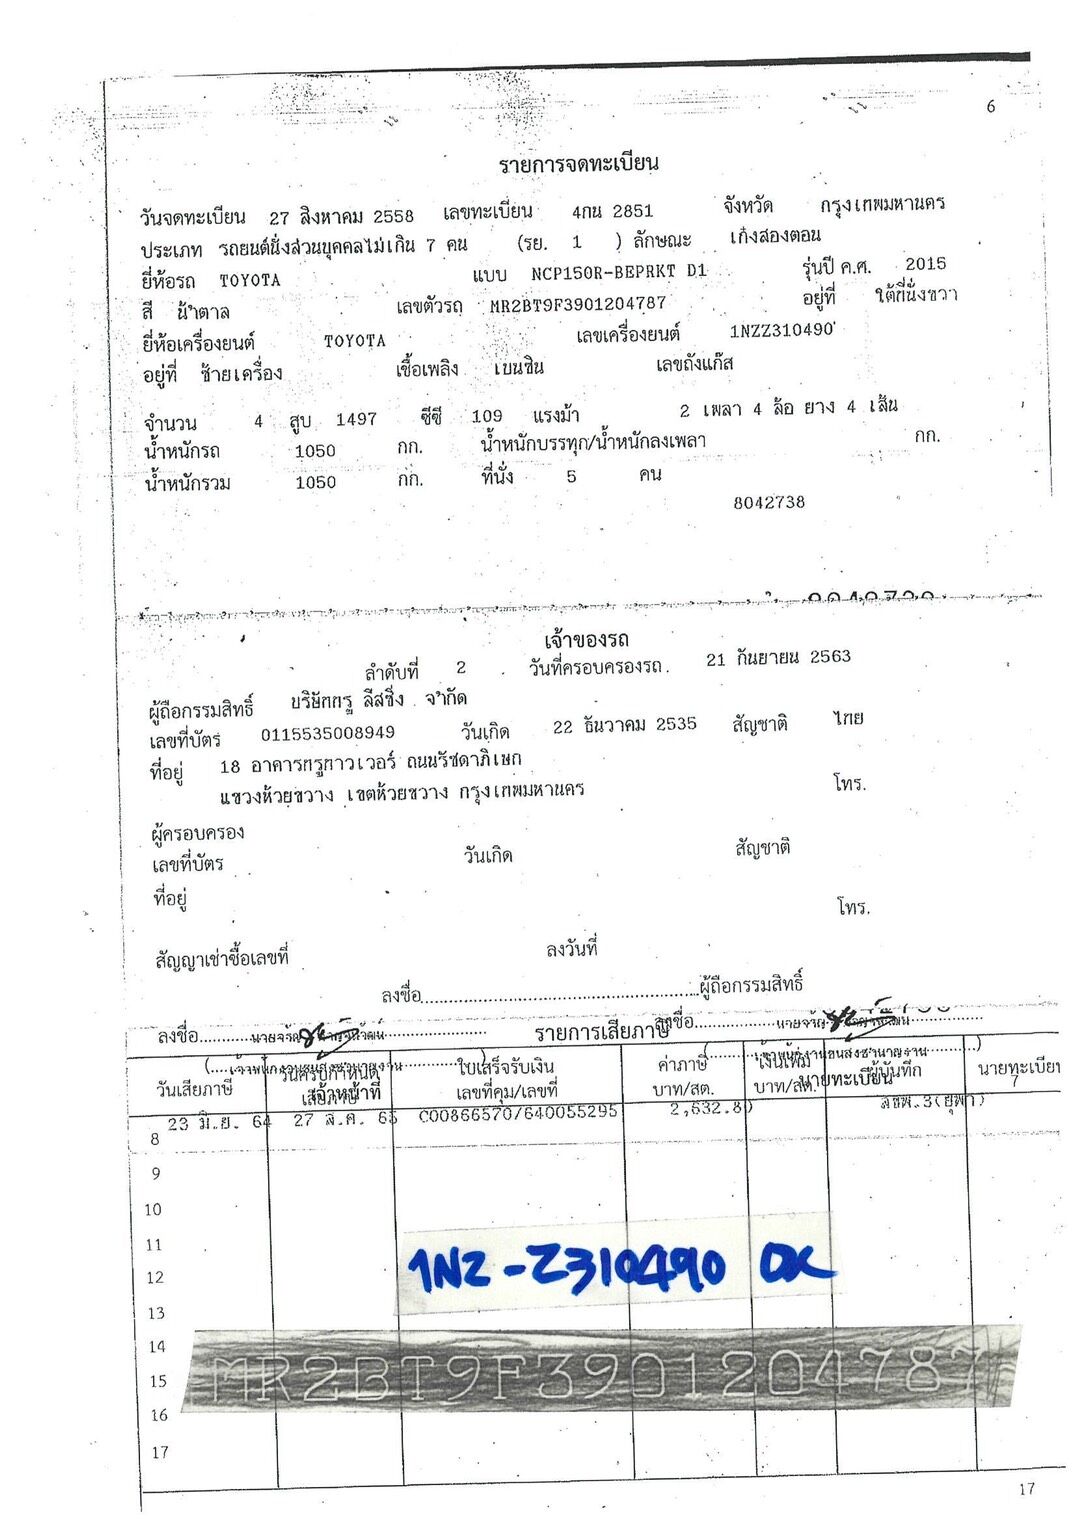 6
รายการจดทะเบียน
วันจดทะเบียน 27 สิงหาคม 2558 เลขทะเบียน 4กน 2851 จังหวัด กรุงเทพมหานคร
ประเภท รถยนต์นั่งส่วนบุคคลไม่เกิน 7 คน (รย. 1 ) ลักษณะ เก๋งสองตอน
ยี่ห้อรถ TOYOTA แบบ NCP150R-BEPRKT D1 รุ่นปี ค.ศ. 2015
สี น้ำตาล เลขตัวรถ MR2BT9F3901204787 อยู่ที่ ใต้ที่นั่งขวา
ยี่ห้อเครื่องยนต์ TOYOTA เลขเครื่องยนต์ 1NZZ310490
อยู่ที่ ซ้ายเครื่อง เชื้อเพลิง เบนซิน เลขถังแก๊ส
จำนวน 4 สูบ 1497 ซีซี 109 แรงม้า 2 เพลา 4 ล้อ ยาง 4 เส้น
น้ำหนักรถ 1050 กก. น้ำหนักบรรทุก/น้ำหนักลงเพลา กก.
น้ำหนักรวม 1050 กก. ที่นั่ง 5 คน
8042738
เจ้าของรถ
ลำดับที่ 2 วันที่ครอบครองรถ. 21 กันยายน 2563
ผู้ถือกรรมสิทธิ์ บริษัททรู ลีสซิ่ง จำกัด
เลขที่บัตร 0115535008949 วันเกิด 22 ธันวาคม 2535 สัญชาติ ไทย
ที่อยู่ 18 อาคารทรูทาวเวอร์ ถนนรัชดาภิเษก
แขวงห้วยขวาง เขตห้วยขวาง กรุงเทพมหานคร โทร.
ผู้ครอบครอง
เลขที่บัตร วันเกิด สัญชาติ
ที่อยู่
โทร.
สัญญาเช่าซื้อเลขที่ ลงวันที่
ลงชื่อ ผู้ถือกรรมสิทธิ์
ลงชื่อ รายการเสียภาษี ลงชื่อ
วันเสียภาษี วันครบกำหนดเสียภาษี เจ้าหน้าที่ ใบเสร็จรับเงิน เลขที่คุม/เลขที่ ค่าภาษี บาท/สต. เงินเพิ่ม บาท/สต. นายทะเบียน ผู้บันทึก นายทะเบียน
7
8 23 มิ.ย. 64 27 ส.ค. 65 C00866570/640055295 2,632.80
9
10
11
1NZ-Z310490 OK
12
13
14
MR2BT9F3901204787
15
16
17
17